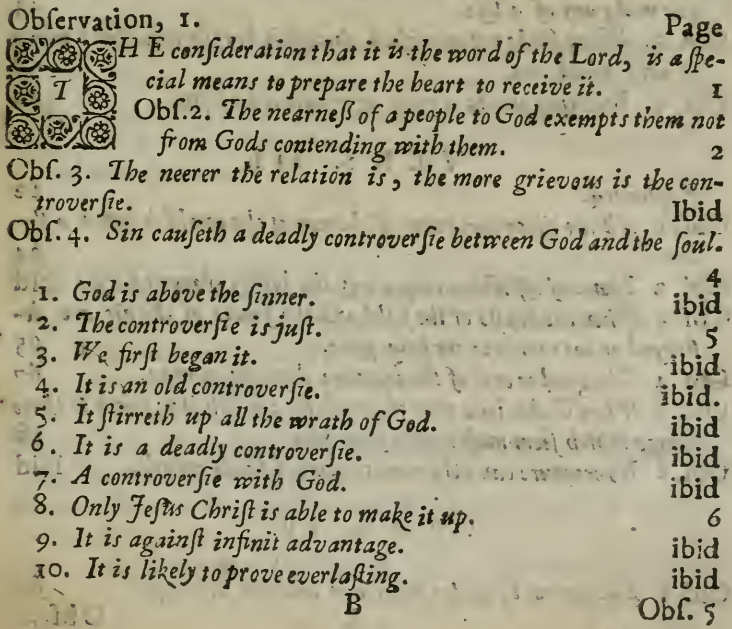 Obſervation, 1. Page
THE conſideration that it is the word of the Lord, is a ſpe-
cial means to prepare the heart to receive it. 1
Obſ. 2. The nearneſſ of a people to God exempts them not
from Gods contending with them. 2
Obſ. 3. The neerer the relation is, the more grievous is the con-
troverſie. Ibid
Obſ. 4. Sin cauſeth a deadly controverſie between God and the ſoul.
4
1. God is above the ſinner. ibid
2. The controverſie is juſt. 5
3. We firſt began it. ibid.
4. It is an old controverſie. ibid.
5. It ſtirreth up all the wrath of God. ibid
6. It is a deadly controverſie. ibid,
7. A controverſie with God. ibid
8. Only Jeſus Chriſt is able to make it up. 6
9. It is againſt infinit advantage. ibid
10. It is likely to prove everlaſting. ibid
B Obſ. 5